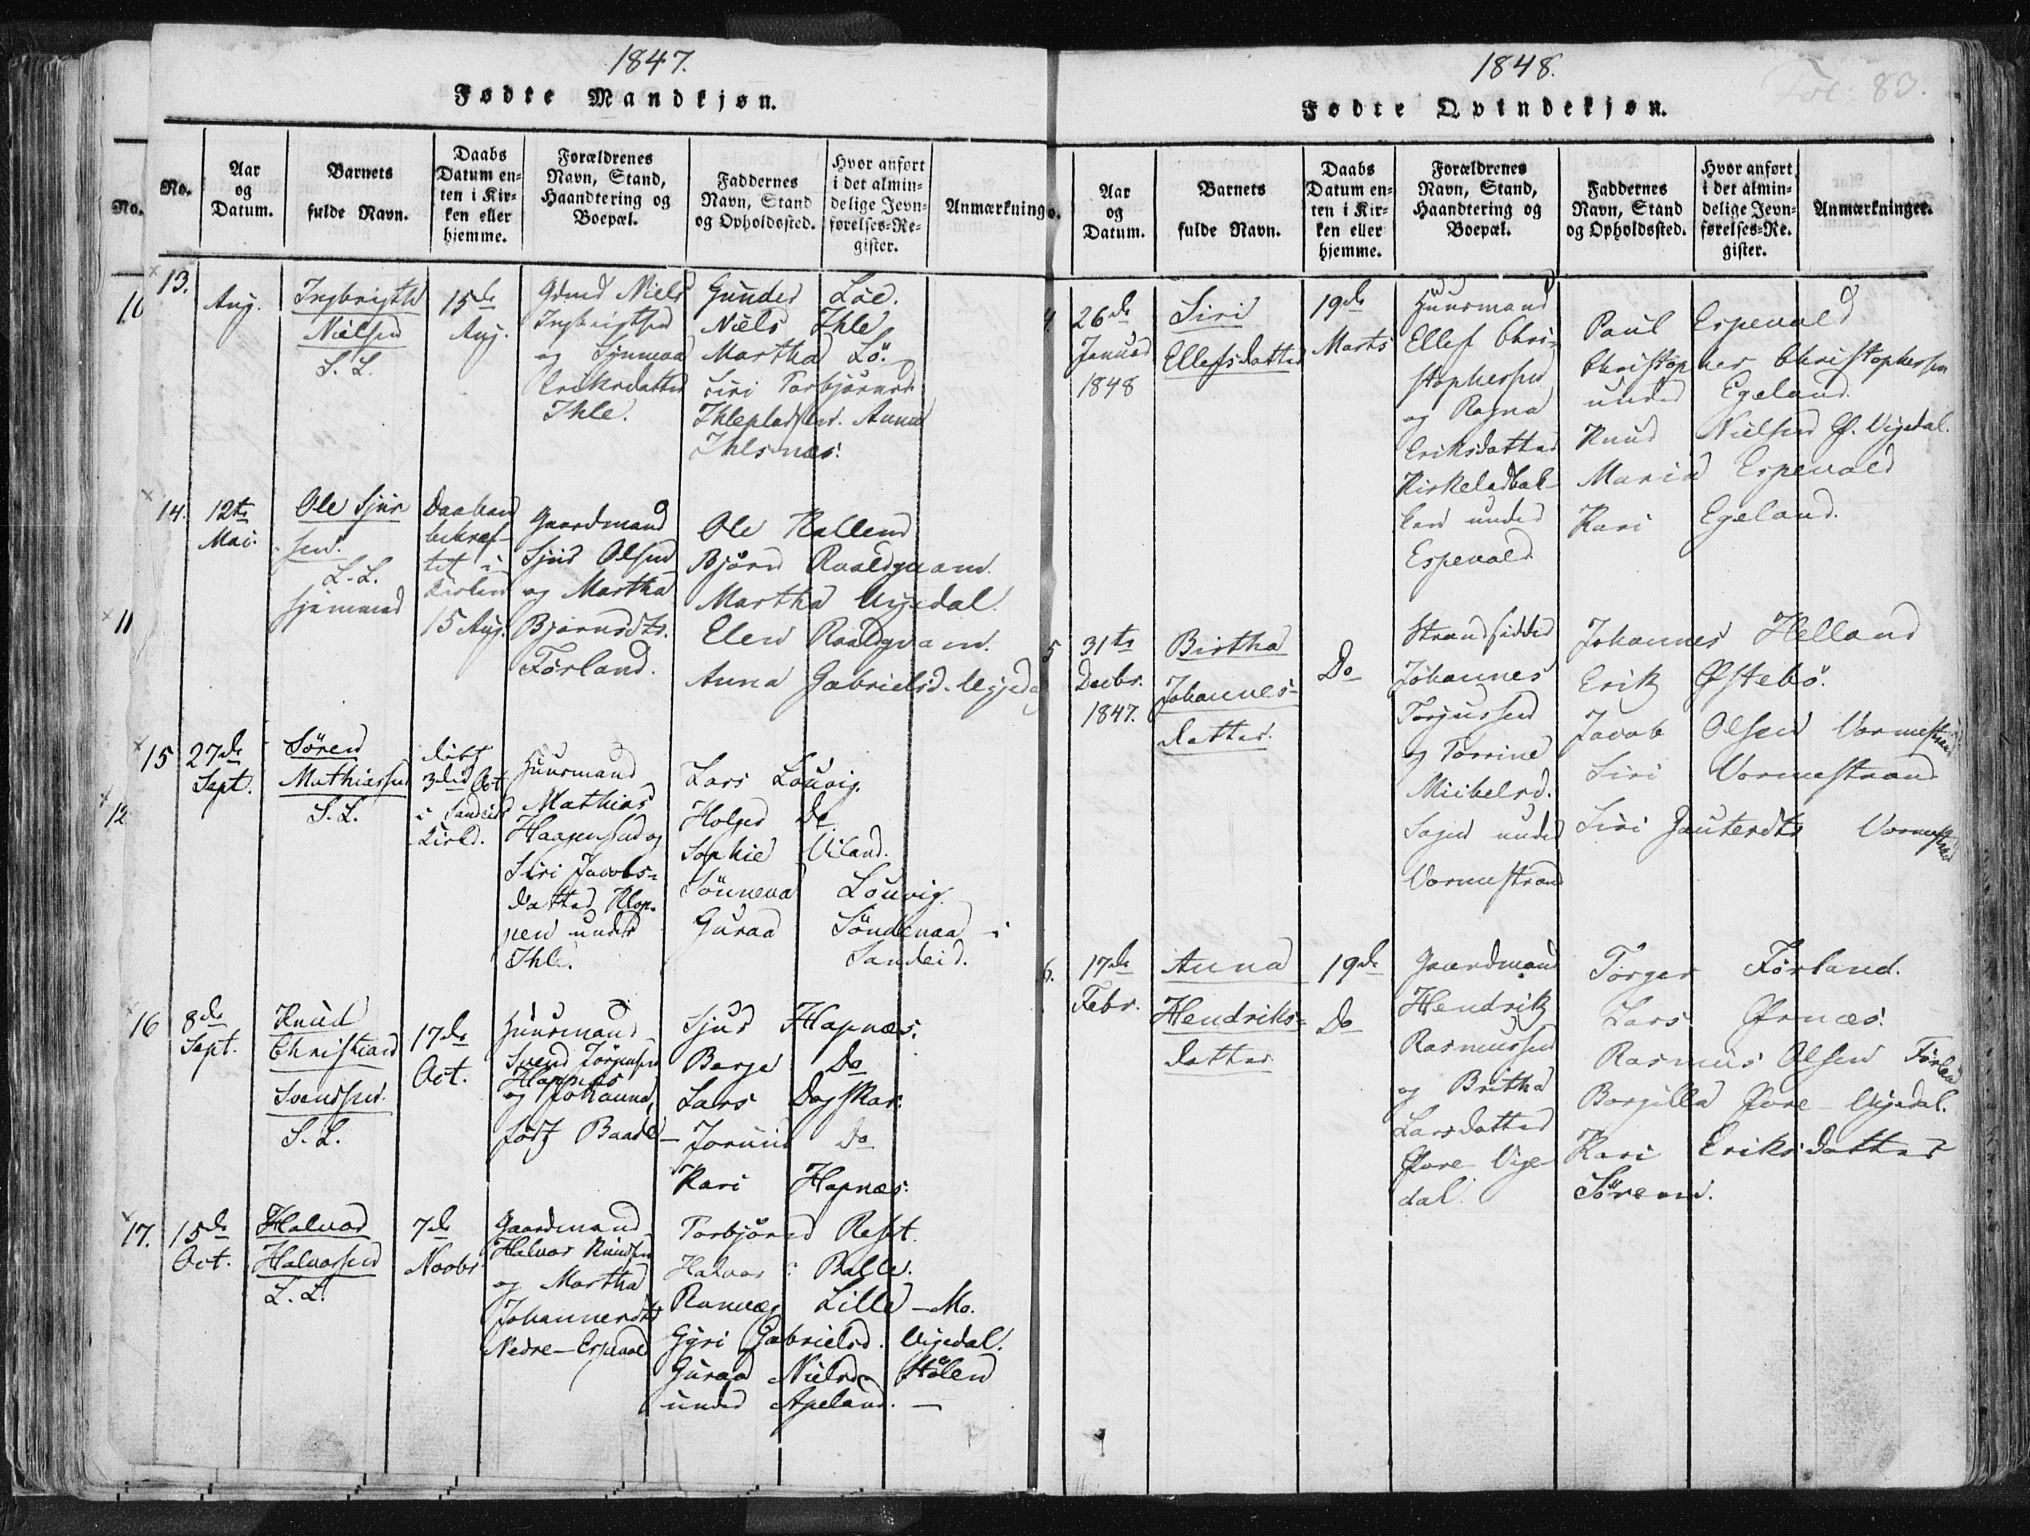 1847.
Fødte Mandkjøn.
No.
No.
Aar
og
Datum.
Barnets
fulde Navn.
Daabs
Datum en-
ten i Kir-
ken eller
hjemme.
Forældrenes
Navn, Stand,
Haandtering og
Boepæl.
Faddernes
Navn, Stand
og Opholdssted.
Hvor anført
i det almin-
delige Jevn-
førelses-Re-
gister.
Anmærkning
10
11
12
13.
Aug.
Ingbrigth
Nielsen
S. L.
15de
Aug.
Gmd Niels
Ingbrigtsen
og Synneva
Eriksdatter
Ihle.
Gunder Löe.
Niels Ihle
Martha Lö.
Siri Torbjörnsd
Ihlepladsen. Anna
Ihlsnæs.
14.
12te
Mai.
Ole Sjur
sen.
L. L.
hjemmed
Daaben
bekræf-
tet i
Kirken
15 Aug.
Gaardmand
Sjur Olsen
og Martha
Bjørnsdtr.
Førland.
Ole
Bjørn Roaldqvam.
Martha Vigedal.
Elen Roaldqvam.
Anna Gabrielsd. Vigeda
15
27de
Sept.
Søren
Mathiassen
S. L.
døbt
3die Oct
i Sandeid
Kirke.
Huusmand
Mathias
Haagensen og
Siri Jacobs-
datter Klop-
pen under
Ihle.
Lars Louvig.
Holger Do
Sophie Eiland.
Sönneva Louvig.
Guraa Söndenaa i
Sandeid.
16
8de
Sept.
Knud
Christian
Svendsen.
S. L.
17de
Oct.
Huusmand
Svend Jörgensen
Hapnæs
og Johanna,
født Baade
Sjur Hapnæs.
Berge Do
Lars Dagskar.
Jorunn Do
Kari Hapnæs.
17.
15de
Oct.
Halvor
Halvorsen
L. L.
7de
Novbr
Gaardmand
Halvor Knudsen
og Martha
Johannesdtr
Nedre-Espevold
Torbjörn
Halvor
Lille-Mo.
Gyri Gabrielsd. Vigedal.
Guraa Nielsd. Hölen
under Apeland.
1848.
Fol: 83.
Fødte Qvindekjøn.
o.
Aar
og
Datum.
Barnets
fulde Navn.
Daabs
Datum en-
ten i Kir-
ken eller
hjemme.
Forældrenes
Navn, Stand,
Haandtering og
Boepæl.
Faddernes
Navn, Stand
og Opholdssted.
Hvor anført
i det almin-
delige Jevn-
førelses-Re-
gister.
Anmærkninger.
4.
26de
Januar
1848
Siri
Ellefsdatter
19de
Marts
Huusmand
Ellef Chri-
stophersen
og Ragna
Eriksdatter
under
Espevold
Paul Espevold
Christopher Christophersen
under Egeland.
Knud Nielsen Ø. Vigedal.
Maria Espevold
Kari Egeland.
5
31te
Decbr.
1847.
Birtha
Johannes-
datter.
Do
Strandsidder
Johannes
Torjussen
og Torrine
Michelsd.
under
Vormestrand
Johannes Helland
Erik Østebö.
Jacob Olsen Vormestrand
Siri Vormestrand
Siri Gautersdtr Vormestrand
6.
17de
Febr.
Anna
Hendriks-
datter
19de
Do
Gaardmand
Hendrik
Rasmussen
og Britha
Larsdatter
Øvre Vige-
dal.
Torger Førland.
Lars Ørnæs.
Rasmus Olsen Førland
Borgilla Øvre-Vigedal.
Kari Eriksdatter
Sörem.